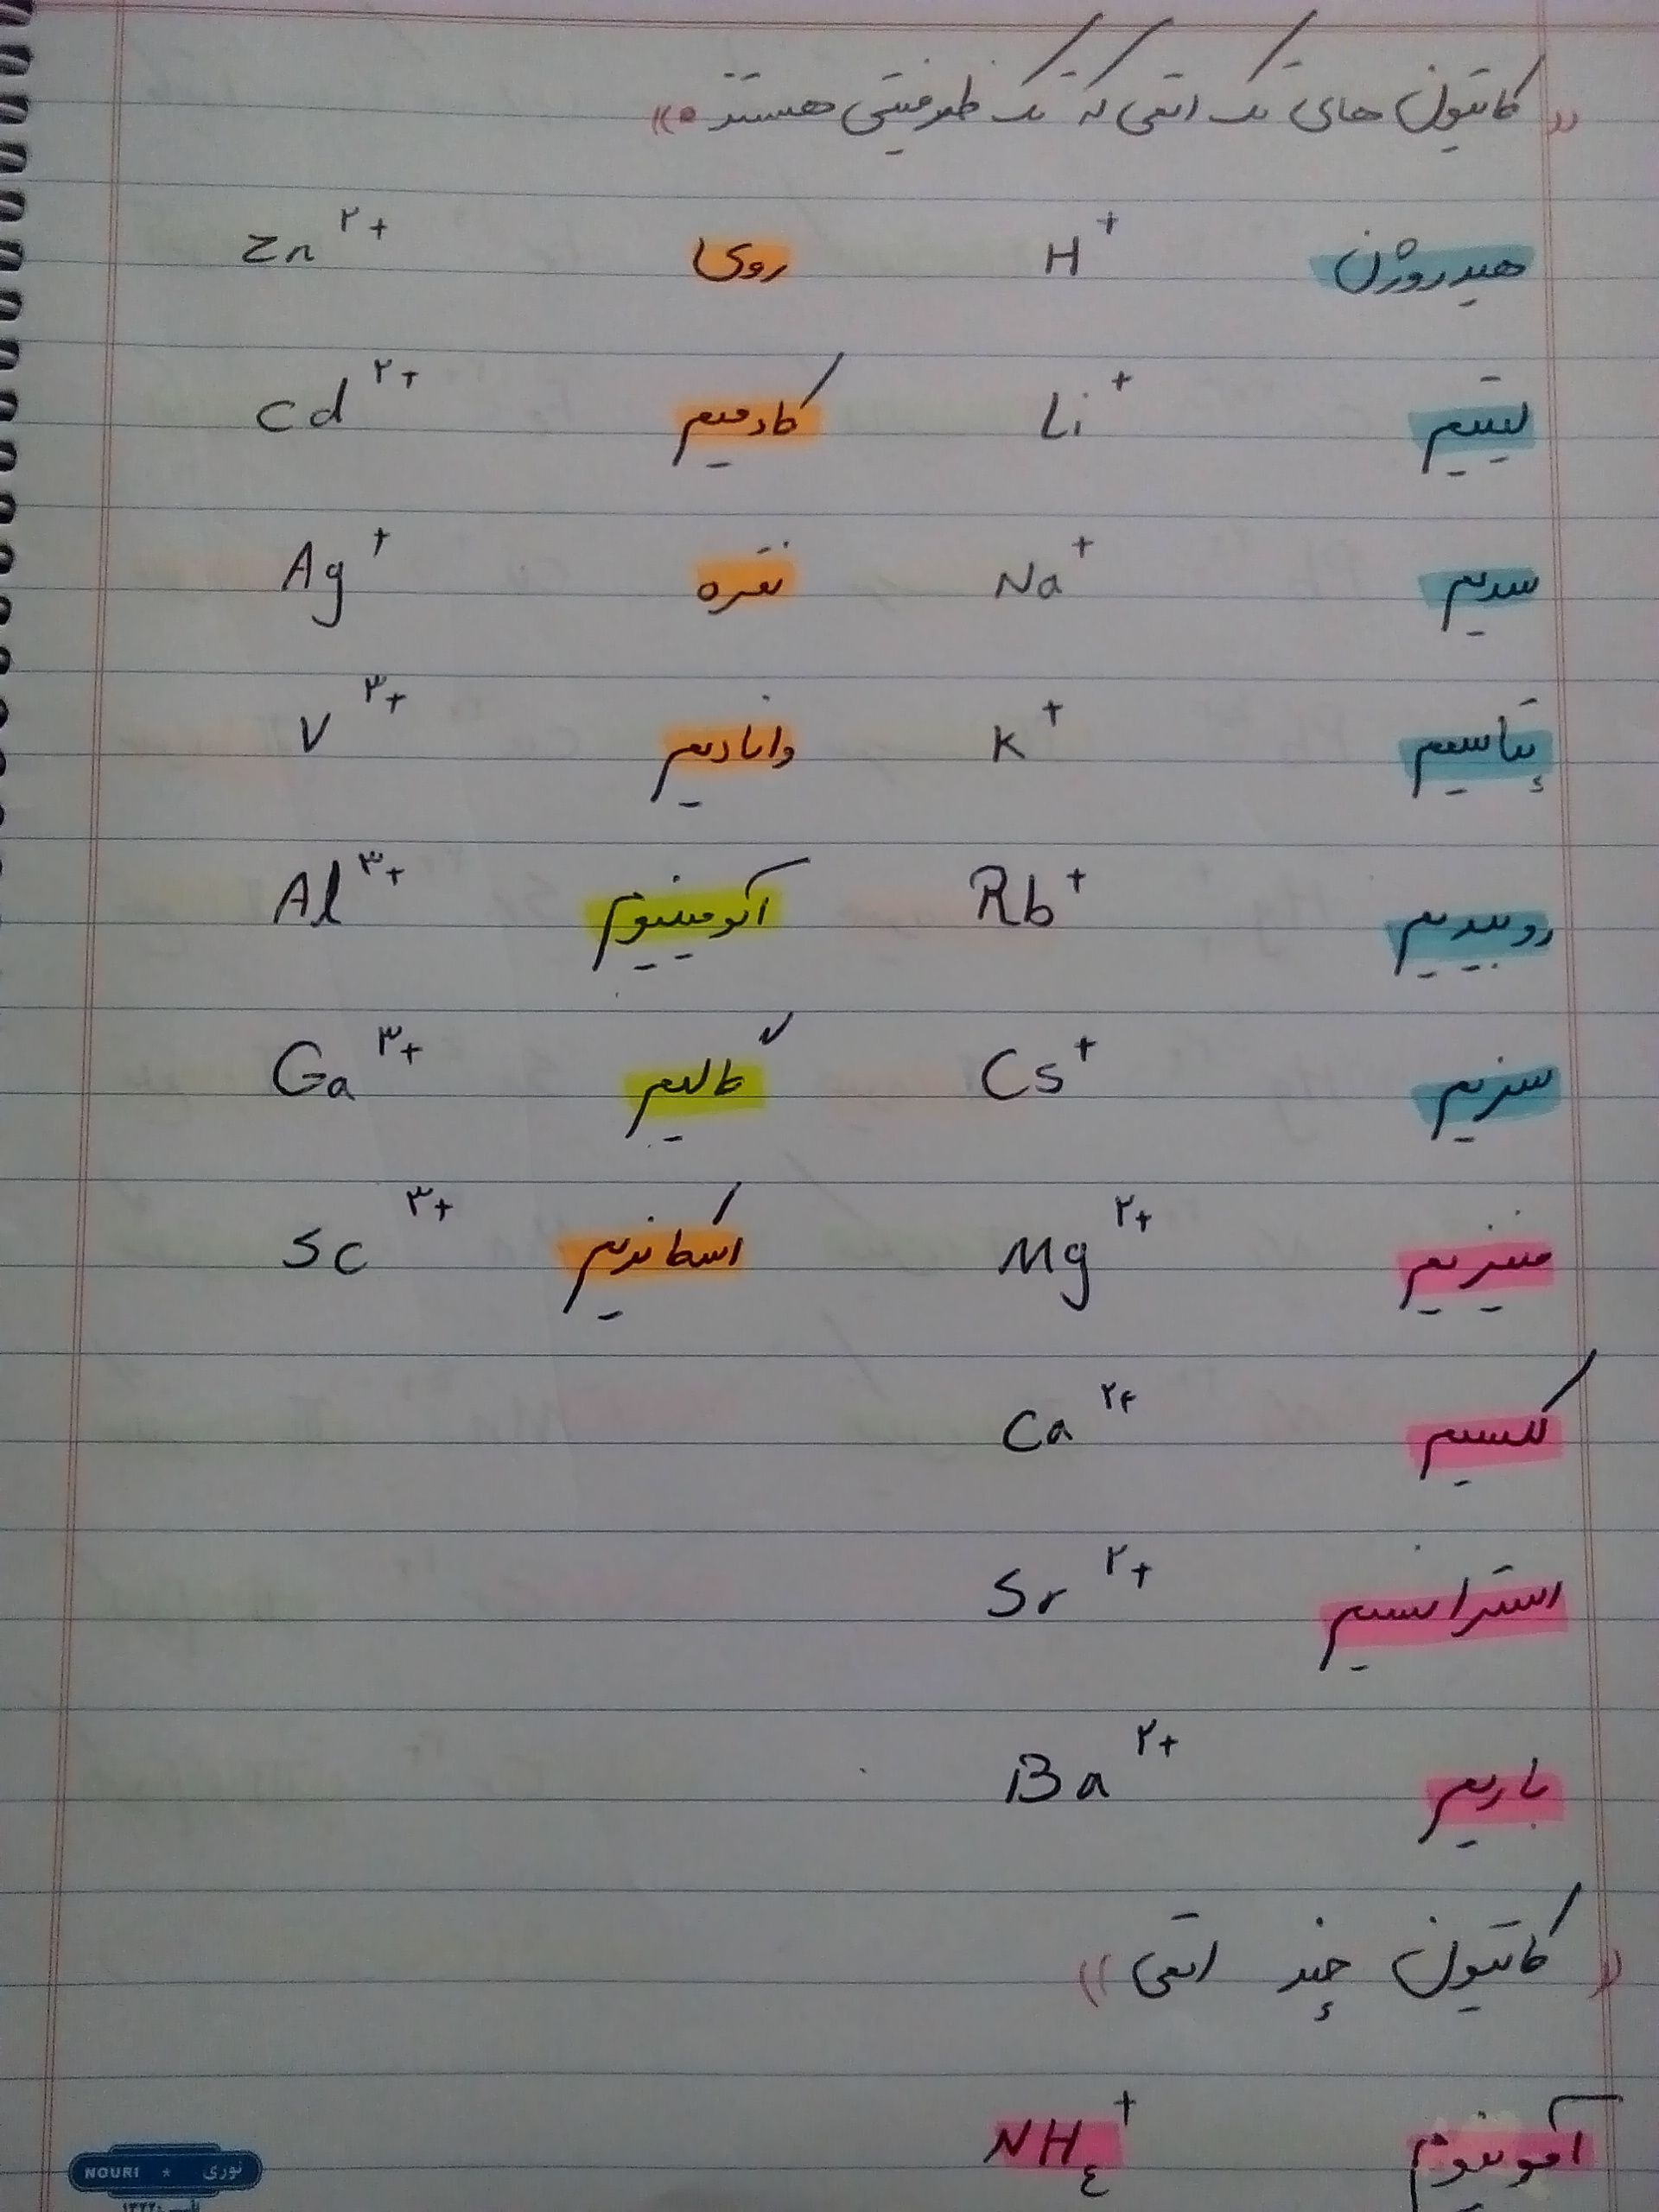 «کاتیون های تک اتمی که تک ظرفیتی هستند»
هیدروژن H⁺ روی Zn²⁺
لیتیم Li⁺ کادمیم Cd²⁺
سدیم Na⁺ نقره Ag⁺
پتاسیم K⁺ وانادیم V³⁺
روبیدیم Rb⁺ آلومینیوم Al³⁺
سزیم Cs⁺ گالیم Ga³⁺
منیزیم Mg²⁺ اسکاندیم Sc³⁺
کلسیم Ca²⁺
استرانسیم Sr²⁺
باریم Ba²⁺
«کاتیون چند اتمی»
آمونیوم NH₄⁺
NOURI * نوری